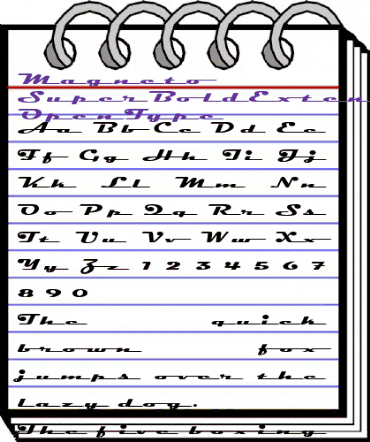 Magneto
SuperBoldExten
OpenType
Aa Bb Cc Dd Ee
Ff Gg Hh Ii Jj
Kk Ll Mm Nn
Oo Pp Qq Rr Ss
Tt Uu Vv Ww Xx
Yy Zz 1 2 3 4 5 6 7
8 9 0
The quick
brown fox
jumps over the
lazy dog.
The five boxing